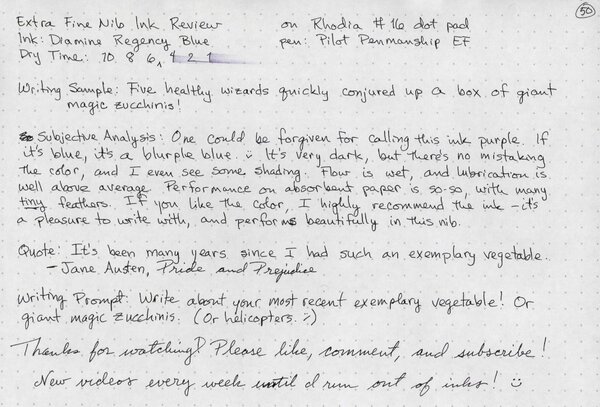 50
Extra Fine Nib Ink Review on Rhodia #16 dot pad
Ink: Diamine Regency Blue pen: Pilot Penmanship EF
Dry Time: 10 8 6 4 2 1
Writing Sample: Five healthy wizards quickly conjured up a box of giant
magic zucchinis!
Subjective Analysis: One could be forgiven for calling this ink purple. If
it's blue, it's a blurple blue. :) It's very dark, but there's no mistaking
the color, and I even see some shading. Flow is wet, and lubrication is
well above average. Performance on absorbent paper is so-so, with many
tiny feathers. If you like the color, I highly recommend the ink - it's
a pleasure to write with, and performs beautifully in this nib.
Quote: It's been many years since I had such an exemplary vegetable.
- Jane Austen, Pride and Prejudice
Writing Prompt: Write about your most recent exemplary vegetable! Or
giant magic zucchinis. (Or helicopters. :)
Thanks for watching! Please like, comment, and subscribe!
New videos every week until I run out of inks! :)